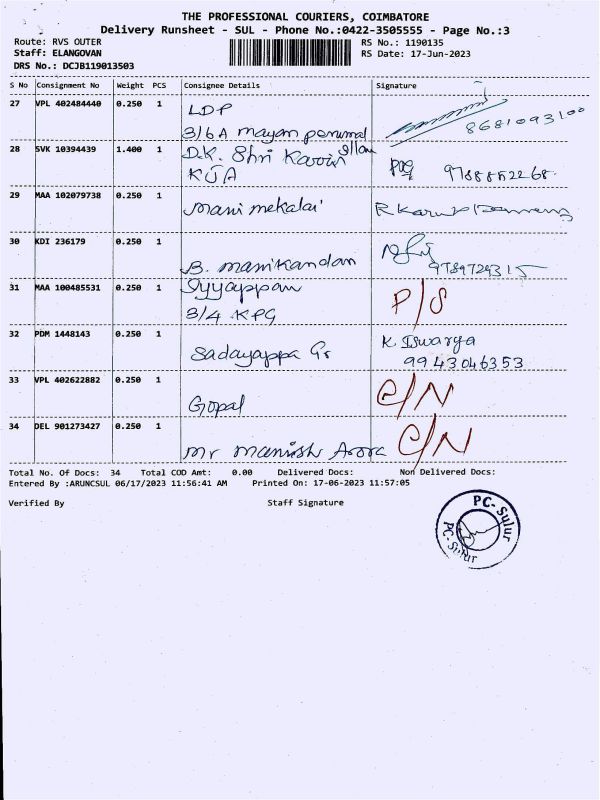 THE PROFESSIONAL COURIERS, COIMBATORE
Delivery Runsheet - SUL - Phone No.:0422-3505555 - Page No.:3
Route: RVS OUTER RS No.: 1190135
Staff: ELANGOVAN RS Date: 17-Jun-2023
DRS No.: DCJB119013503
S No Consignment No Weight PCS Consignee Details Signature
27 VPL 402484440 0.250 1 LDP
3/6A mayan perumal 8681093100
28 SVK 10394439 1.400 1 D.K. Shri Kavin Illam
KJA 9788852268
29 MAA 102079738 0.250 1 Manimekalai
30 KDI 236179 0.250 1 B. manikandan 9789729315
31 MAA 100485531 0.250 1 Iyyappan P/S
3/4 KPG
32 PDM 1448143 0.250 1 Sadayappa Gr K. Iswarya
9943046353
33 VPL 402622882 0.250 1 Gopal C/N
34 DEL 901273427 0.250 1 Mr Manish Arora C/N
Total No. Of Docs: 34 Total COD Amt: 0.00 Delivered Docs: Non Delivered Docs:
Entered By :ARUNCSUL 06/17/2023 11:56:41 AM Printed On: 17-06-2023 11:57:05
Verified By Staff Signature
PC-Sulur
PC-Sulur